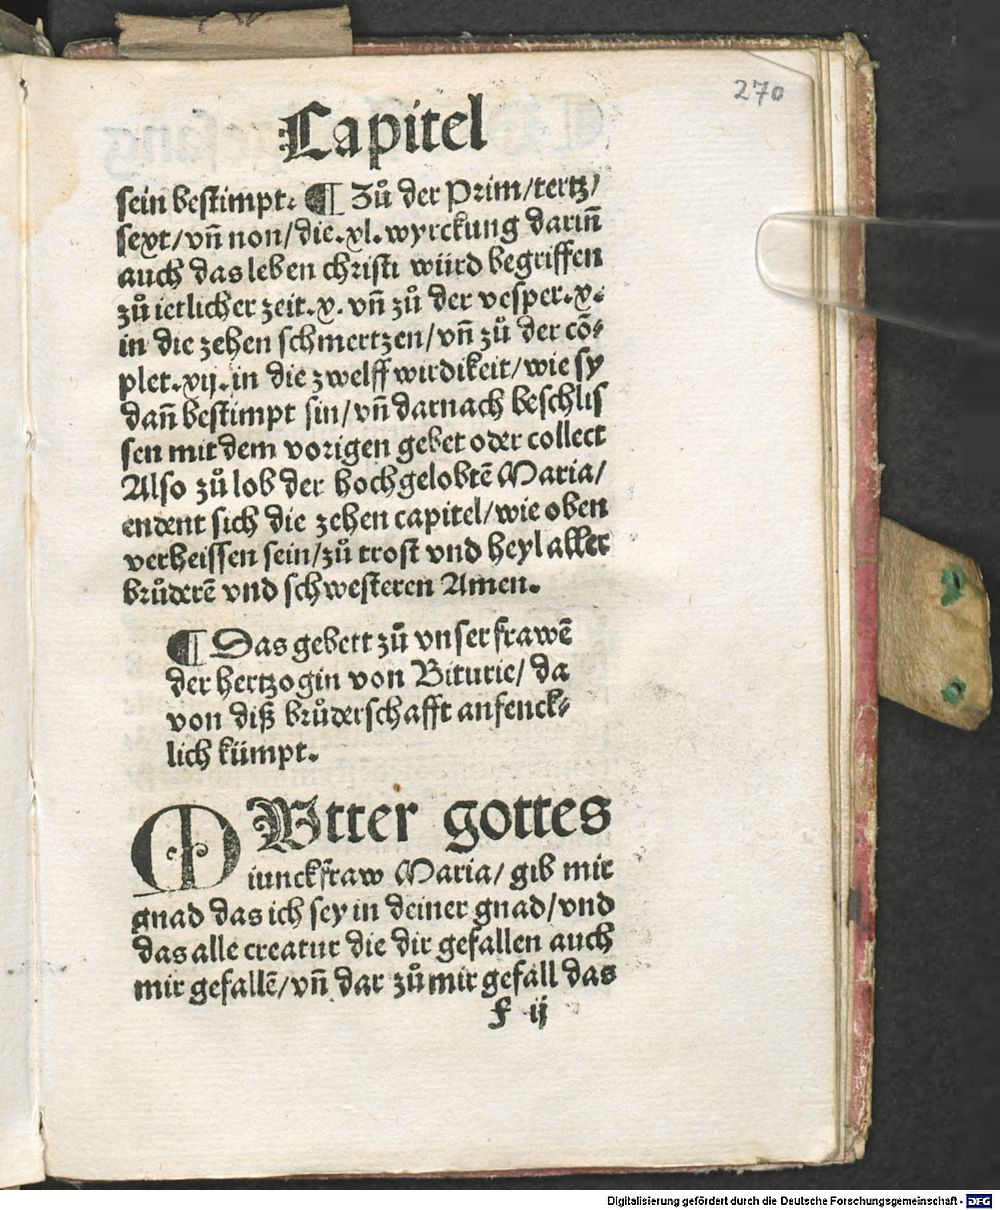 270
Capitel
sein bestimpt. ¶ Zuͦ der Prim/tertz/
sext/vn̄ non/die.xl.wyrckung darin̄
auch das leben christi würd begriffen
zuͦ ietlicher zeit.x. vn̄ zuͦ der vesper.x.
in die zehen schmertzen/vn̄ zuͦ der cō-
plet.xij.in die zwelff wirdikeit/wie sy
dan̄ bestimpt sin/vn̄ darnach beschlis
sen mit dem vorigen gebet oder collect
Also zuͦ lob der hochgelobtē Maria/
endent sich die zehen capitel/wie oben
verheissen sein/zuͦ trost vnd heyl aller
bruͦderē vnd schwesteren Amen.
¶ Das gebett zuͦ vnser frawē
der hertzogin von Biturie/ da
von diß bruͦderschafft anfenck-
lich kümpt.
MVtter gottes
iunckfraw Maria/ gib mir
gnad das ich sey in deiner gnad/vnd
das alle creatur die dir gefallen auch
mir gefallē/vn̄ dar zuͦ mir gefall das
f ij
Digitalisierung gefördert durch die Deutsche Forschungsgemeinschaft - DFG